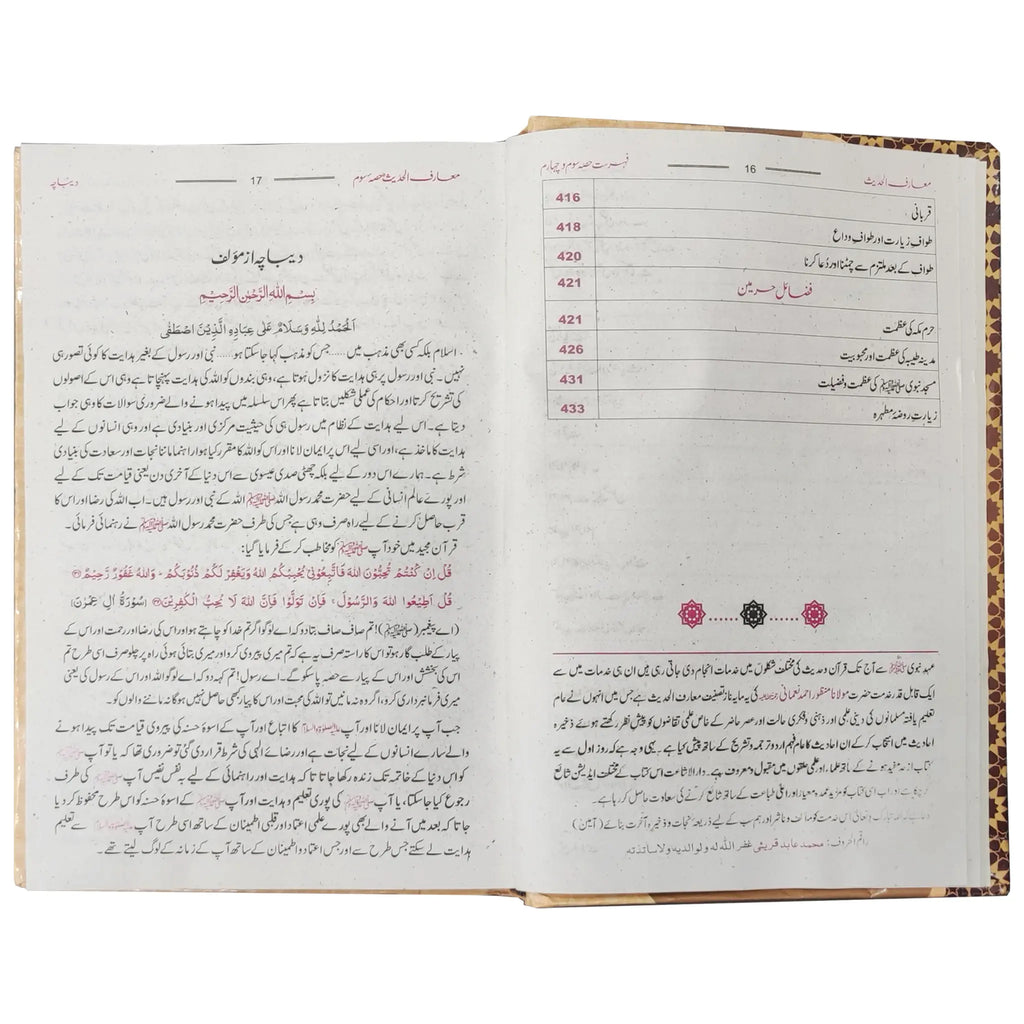 معارف الحدیث
16
فہرست حصہ سوم و چہارم
قربانی 416
طواف زیارت اور طواف وداع 418
طواف کے بعد ملتزم سے چمٹنا اور دُعا کرنا 420
فضائل حرمین 421
حرم مکہ کی عظمت 421
مدینہ طیبہ کی عظمت اور محبوبیت 426
مسجد نبوی ﷺ کی عظمت و فضیلت 431
زیارتِ روضۂ مطہرہ 433
عہد نبوی ﷺ سے آج تک قرآن و حدیث کی مختلف شکلوں میں خدمات انجام دی جاتی رہی ہیں ان ہی خدمات میں سے
ایک قابل قدر خدمت حضرت مولانا منظور احمد نعمانی کی یہ مایہ ناز تصنیف معارف الحدیث ہے جس میں انہوں نے عام
تعلیم یافتہ مسلمانوں کی دینی علمی اور ذہنی و فکری حالت اور عصر حاضر کے خاص علمی تقاضوں کو پیش نظر رکھتے ہوئے ذخیرہ
احادیث میں انتخاب کر کے ان احادیث کا عام فہم اردو ترجمہ و تشریح کے ساتھ پیش کیا ہے۔ یہی وجہ ہے کہ روز اول سے یہ
کتاب از حد مفید ہونے کے ساتھ علماء اور علمی حلقوں میں مقبول و معروف ہے۔ دارالاشاعت اس کتاب کے مختلف ایڈیشن شائع
کرچکا ہے اور اب اسی کتاب کو مزید عمدہ و معیار اور اعلیٰ طباعت کے ساتھ شائع کرنے کی سعادت حاصل کر رہا ہے۔
دعا ہے کہ اللہ تبارک و تعالیٰ اس خدمت کو مؤلف و ناشر اور ہم سب کے لیے ذریعۂ نجات و ذخیرہ آخرت بنائے (آمین)
راقم الحروف: محمد عابد قریشی غفر الله له ولوالديه ولاساتذته
معارف الحدیث حصہ سوم
17
دیباچہ
دیباچہ از مؤلف
بِسْمِ اللهِ الرَّحْمٰنِ الرَّحِيْمِ
اَلْحَمْدُ لِلّٰهِ وَسَلَامٌ عَلٰى عِبَادِهِ الَّذِيْنَ اصْطَفٰى
اسلام بلکہ کسی بھی مذہب میں ..... جس کو مذہب کہا جا سکتا ہو ..... نبی اور رسول کے بغیر ہدایت کا کوئی تصور ہی
نہیں۔ نبی اور رسول پر ہی ہدایت کا نزول ہوتا ہے، وہی بندوں کو اللہ کی ہدایت پہنچاتا ہے وہی اس کے اصولوں
کی تشریح کرتا اور احکام کی عملی شکلیں بتاتا ہے پھر اس سلسلہ میں پیدا ہونے والے ضروری سوالات کا وہی جواب
دیتا ہے۔ اس لیے ہدایت کے نظام میں رسول ہی کی حیثیت مرکزی اور بنیادی ہے اور وہی انسانوں کے لیے
ہدایت کا ماخذ ہے، اور اسی لیے اس پر ایمان لانا اور اس کو اللہ کا مقرر کیا ہوا رہنما ماننا نجات اور سعادت کی بنیادی
شرط ہے۔ ہمارے اس دور کے لیے بلکہ چھٹی صدی عیسوی سے اس دنیا کے آخری دن یعنی قیامت تک کے لیے
اور پورے عالم انسانی کے لیے حضرت محمد رسول اللہ ﷺ اللہ کے نبی اور رسول ہیں۔ اب اللہ کی رضا اور اس کا
قرب حاصل کرنے کے لیے راہ صرف وہی ہے جس کی طرف حضرت محمد رسول اللہ ﷺ نے رہنمائی فرمائی۔
قرآن مجید میں خود آپ ﷺ کو مخاطب کر کے فرمایا گیا:
قُلْ اِنْ كُنْتُمْ تُحِبُّوْنَ اللّٰهَ فَاتَّبِعُوْنِيْ يُحْبِبْكُمُ اللّٰهُ وَيَغْفِرْ لَكُمْ ذُنُوْبَكُمْ ۔ وَاللّٰهُ غَفُوْرٌ رَّحِيْمٌ ﴿۳۱﴾
قُلْ اَطِيْعُوا اللّٰهَ وَالرَّسُوْلَ ۚ فَاِنْ تَوَلَّوْا فَاِنَّ اللّٰهَ لَا يُحِبُّ الْكٰفِرِيْنَ ﴿۳۲﴾ (سُوْرَةُ اٰلِ عِمْرٰنَ)
(اے پیغمبر (ﷺ)! تم صاف صاف بتا دو کہ اے لوگو اگر تم خدا کو چاہتے ہو اور اس کی رضا و رحمت اور اس کے
پیار کے طلب گار ہو تو اس کا راستہ صرف یہ ہے کہ تم میری پیروی کرو اور میری بتائی ہوئی راہ پر چلو صرف اسی طرح تم
اس کی بخشش اور اس کے پیار سے حصہ پا سکو گے۔ اے رسول! تم کہہ دو کہ اے لوگو اللہ اور اس کے رسول کی یعنی
میری فرمانبرداری کرو، اگر وہ نہ مانیں تو اللہ کی محبت اور اس کا پیار کبھی حاصل نہیں ہو گا نہ ماننے والوں کو۔
جب آپ پر ایمان لانا اور آپ کا اتباع اور آپ کے اسوۂ حسنہ کی پیروی قیامت تک پیدا ہونے
والے سارے انسانوں کے لیے نجات ہے اور رضائے الٰہی کی شرط قرار دی گئی تو ضروری تھا کہ یا تو آپ
کو اس دنیا کے خاتمہ تک زندہ رکھا جاتا تا کہ ہدایت اور راہنمائی کے لیے بہ نفس نفیس آپ ﷺ کی طرف
رجوع کیا جا سکتا، یا آپ ﷺ کی پوری تعلیم و ہدایت اور آپ کے اسوۂ حسنہ کو اس طرح محفوظ کر دیا
جاتا کہ بعد میں آنے والے بھی پورے علمی اعتماد اور قلبی اطمینان کے ساتھ اسی طرح آپ سے تعلیم
ہدایت لے سکتے جس طرح سے اور جس اعتماد و اطمینان کے ساتھ آپ کے زمانہ کے لوگ لیتے تھے۔